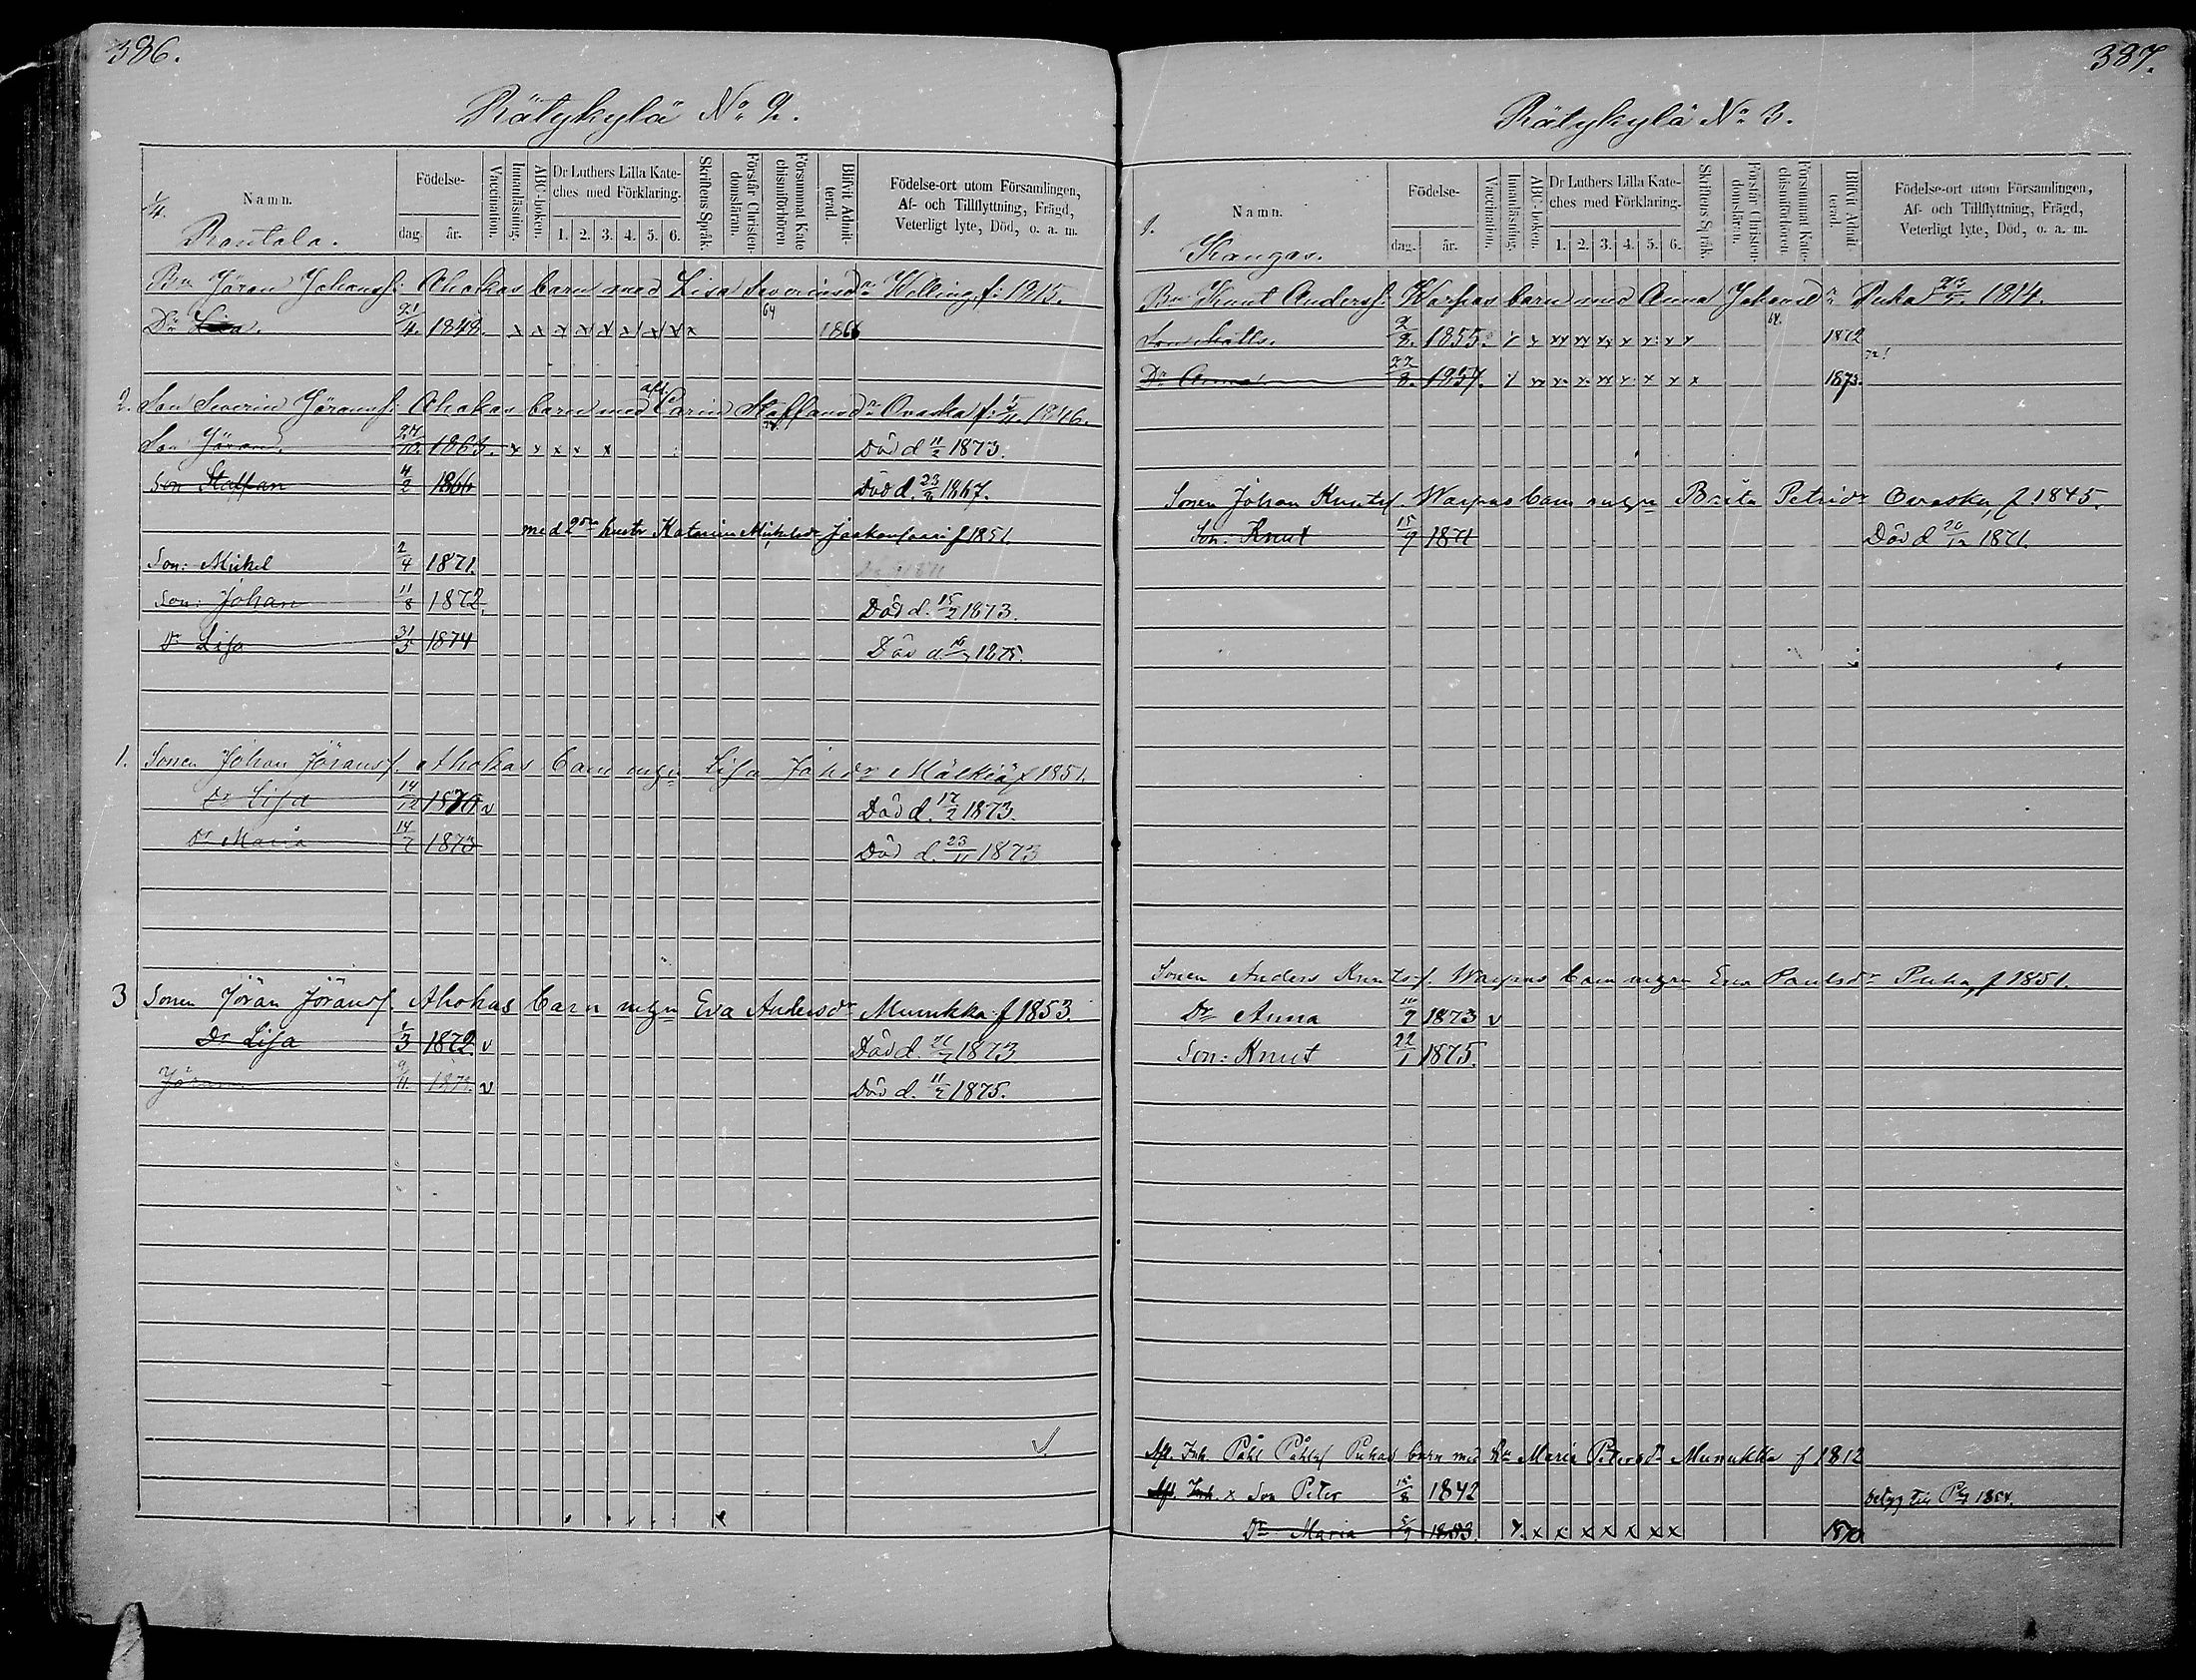 386.
Rätykylä No 2.
1/4.
Namn.
Födelse-
dag.
år.
Vaccination.
Innanläsning.
ABC-boken.
Dr Luthers Lilla Kate-
ches med Förklaring.
1. 2. 3. 4. 5. 6.
Skriftens Språk.
Förstår Christen-
domsläran.
Försummat Kate
chismiförhören
Blifvit Admit-
terad.
Födelse-ort utom Församlingen,
Af- och Tillflyttning, Frägd,
Veterligt lyte, Död, o. a. m.
Rautala.
Bn Jöran Johansf. Ahokas barn med Lisa Severinsdr Kelling f: 1815.
Dr Lisa. 21/4. 1848. x x x x x x x x x 64 1866
2. Son Severin Jöransf. Ahokas barn med afl. Carin Staffansdr Ovaska f: 1846.
Son Jöran. 27/10. 1863. x x x x x Död d 11/2 1873.
Son Staffan 4/2 1866 Död d. 23/2 1867.
med 2dra hustr Katarina Mickelsdr f 1851.
Son: Mickel 2/4 1871.
Son: Johan 11/8 1872. Död d. 15/2 1873.
Dr Lisa 31/5 1874 Död d. 1875.
1. Sonen Johan Jöransf. Ahokas barn m Lisa Johdr Mälkiä f 1851.
Dr Lisa 14/12 1870 v Död d. 17/2 1873.
Dr Maria 14/7 1873 Död d. 23/11 1873
3 Sonen Jöran Jöransf. Ahokas barn m Eva Andersdr Munukka f 1853.
Dr Lisa 1/3 1872. v Död d. 26/7 1873
Jöran 9/11. v Död d. 11/7 1875.
387.
Rätykylä No 3.
1.
Namn.
Födelse-
dag.
år.
Vaccination.
Innanläsning.
ABC-boken.
Dr Luthers Lilla Kate-
ches med Förklaring.
1. 2. 3. 4. 5. 6.
Skriftens Språk.
Förstår Christen-
domsläran.
Försummat Kate-
chismiförhören.
Blifvit Admit-
terad.
Födelse-ort utom Församlingen,
Af- och Tillflyttning, Frägd,
Veterligt lyte, Död, o. a. m.
Kangas.
Bn Knut Andersf. Warpas barn med Anna Johansdr Puha 1814.
Son Matts. 2/2. 1855. x x xx xx xx x x x x 64. 1872
Dr Anna. 22/8. 1857. x xx x xx x x x x 1873.
Sonen Johan Knutsf. Warpas barn m Brita Petridr Ovaska, f 1845.
Son: Knut 15/9 1871 Död d 20/12 1871.
Sonen Anders Knutsf. Warpas barn m Eva Paulsdr Puha, f 1851.
Dr Anna 10/9 1873 v
Son: Knut 22/1 1875.
Afl. Inh. Påhl Påhlsf Puhas barn med Maria Petersdr Munukka f 1812
Afl. Inh. x Son Peter 18/8 1842
Dr Maria 5/9 1853. x x x x x x x x 1870